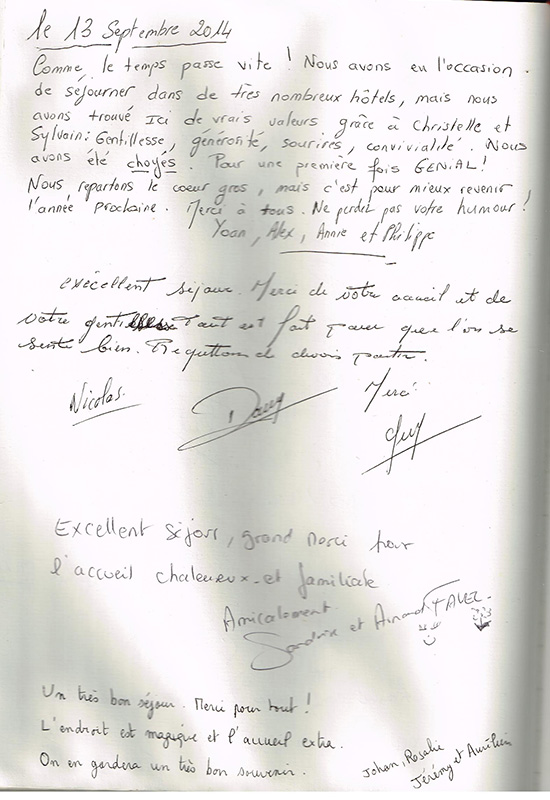 le 13 Septembre 2014
Comme le temps passe vite ! Nous avons eu l'occasion
de séjourner dans de très nombreux hôtels, mais nous
avons trouvé ici de vrais valeurs grâce à Christelle et
Sylvain : Gentillesse, générosité, sourires, convivialité. Nous
avons été choyés. Pour une première fois GENIAL !
Nous repartons le coeur gros, mais c'est pour mieux revenir
l'année prochaine. Merci à tous. Ne perdez pas votre humour !
Yoan, Alex, Annie et Philippe
excellent sejour. Merci de votre accueil et de
votre gentillesse Tout est fait pour que l'on se
sente bien. Regrettons de devoir partir.
Merci
Nicolas Dany Guy
Excellent séjour, grand merci pour
l'accueil chaleureux et familiale
Amicalement.
Sandrine et Arnaud
Un très bon séjour. Merci pour tout !
L'endroit est magique et l'accueil extra.
On en gardera un très bon souvenir.
Johan, Rosalie
Jérémy et Aurélien